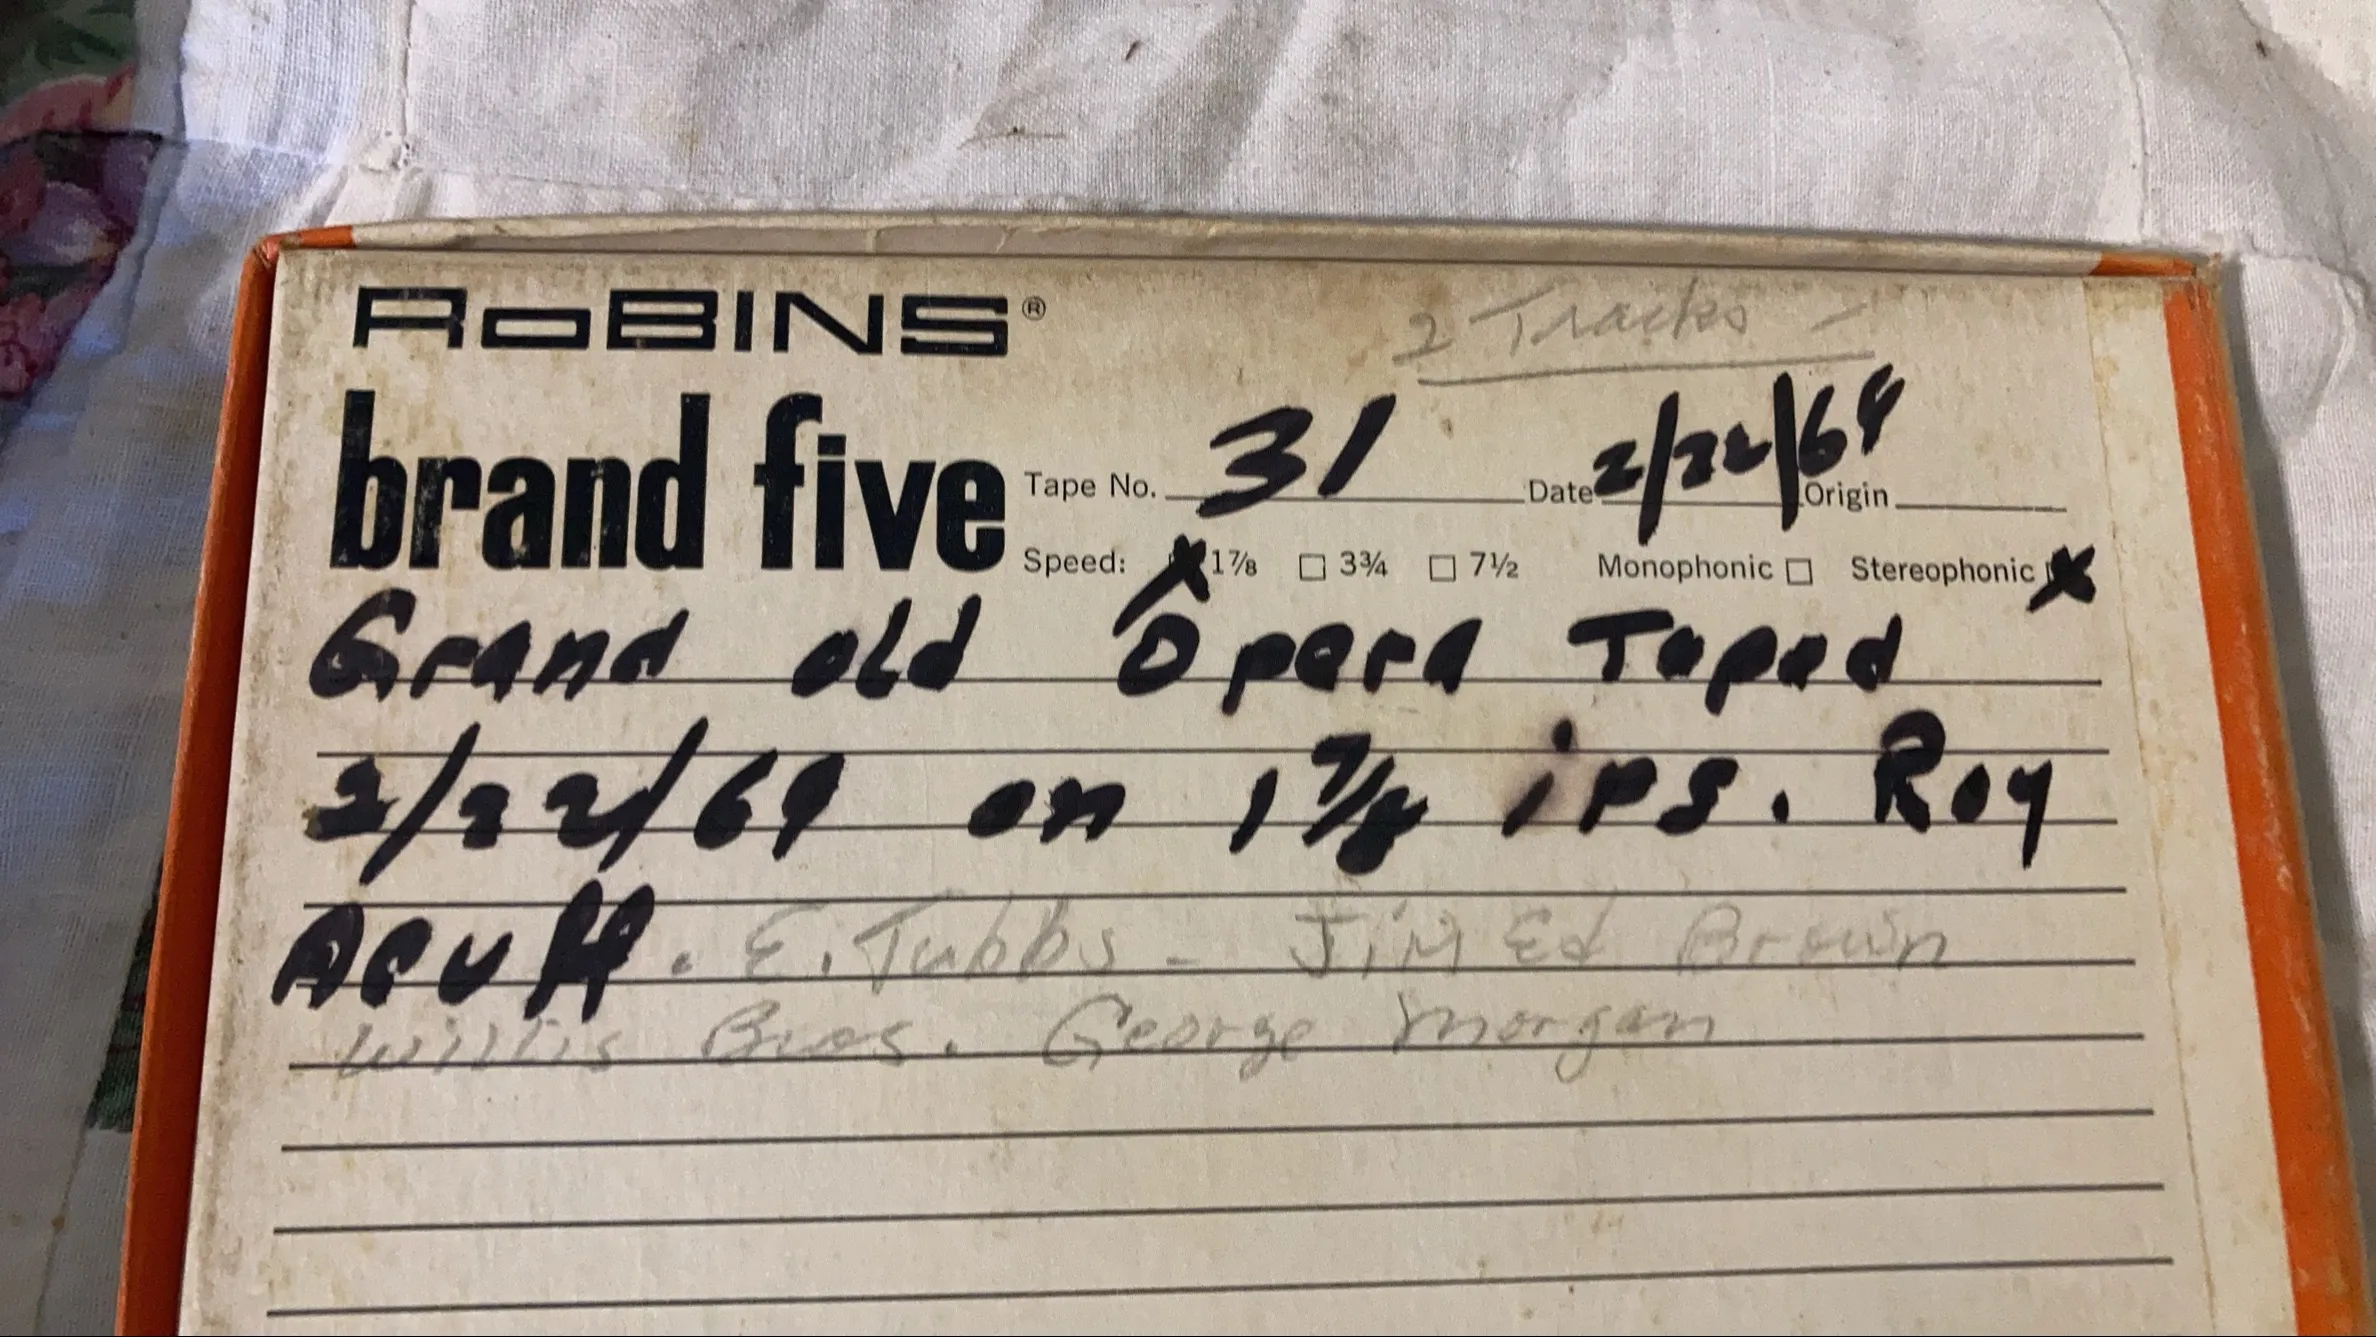 RoBINS®
2 Tracks -
brand five
Tape No. 31 Date 2/22/69 Origin
Speed: 1⅞ 3¾ 7½ Monophonic Stereophonic
Grand old Opera Taped
2/22/69 on 1⅞ ips. Roy
Acuff. E. Tubbs - Jim Ed Brown
Willis Bros. George Morgan